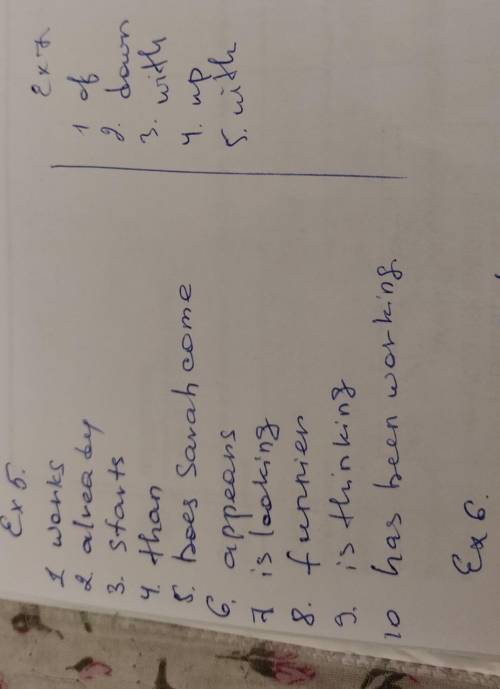 Ex 5.
1 works
2 already
3. starts
4. than
5. Does Sarah come
6. appears
7 is looking
8. funnier
9. is thinking
10 has been working.
Ex 7
1 of
2. down
3. with
4. up
5. with
Ex 6.